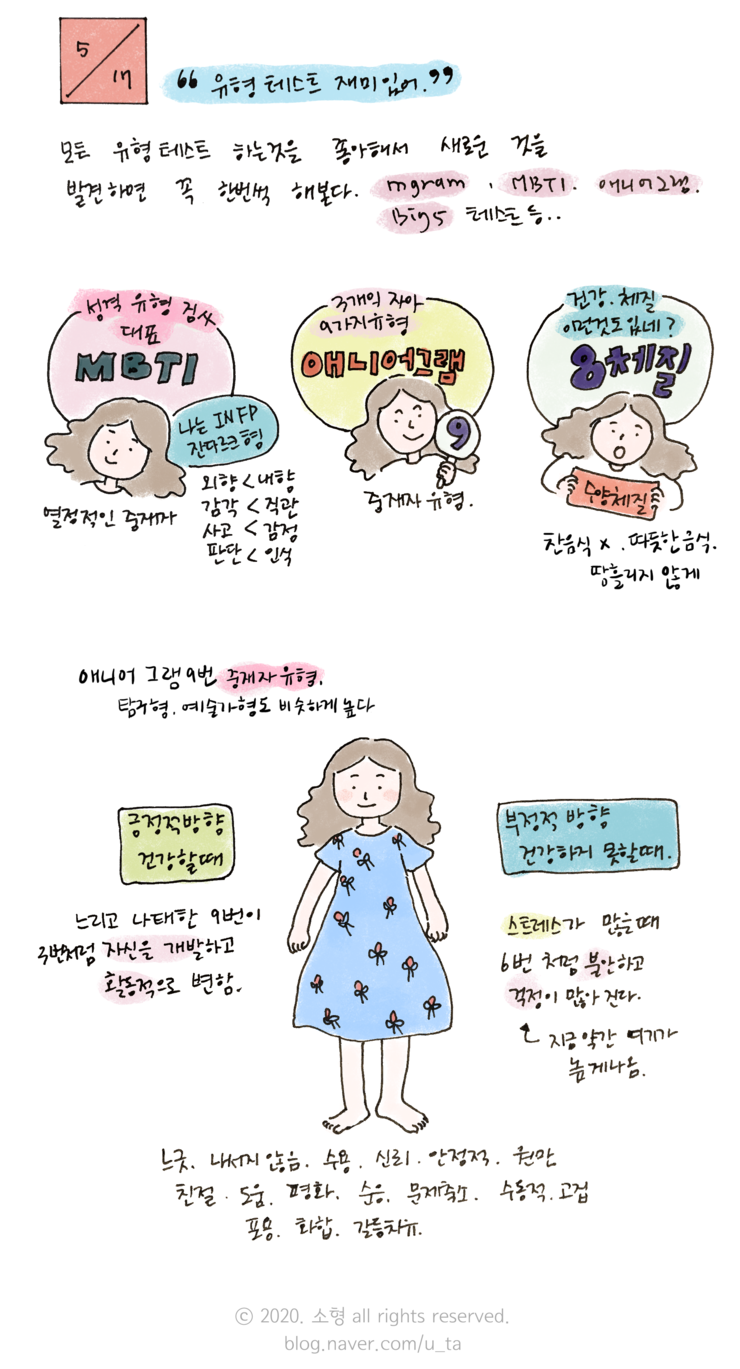 5/17
“유형테스트 재미있어.”
모든 유형테스트 하는것을 좋아해서 새로운 것을
발견하면 꼭 한번씩 해본다. mgram, MBTI. 애니어그램.
Big5 테스트등..
성격 유형 검사
대표
MBTI
나는 INFP
잔다르크형
외향<내향
감각<직관
사고<감정
판단<인식
열정적인 중재자
3개의 자아
9가지유형
애니어그램
9
중재자 유형.
건강.체질
이런것도있네?
8체질
수양체질
찬음식 x. 따듯한음식.
땀흘리지 않게
애니어 그램9번 중재자유형.
탐구형. 예술가형도 비슷하게 높다
긍정적방향
건강할때
느리고 나태한 9번이
3번처럼 자신을 개발하고
활동적으로 변함.
부정적 방향
건강하지 못할때.
스트레스가 많을때
6번 처럼 불안하고
걱정이 많아 진다.
지금약간 여기가
높게나옴.
느긋. 내서지않음. 수용. 신뢰. 안정적. 원만
친절. 도움. 평화. 순응. 문제축소. 수동적.고집
포용. 화합. 갈등치유.
ⓒ 2020. 소형 all rights reserved.
blog.naver.com/u_ta